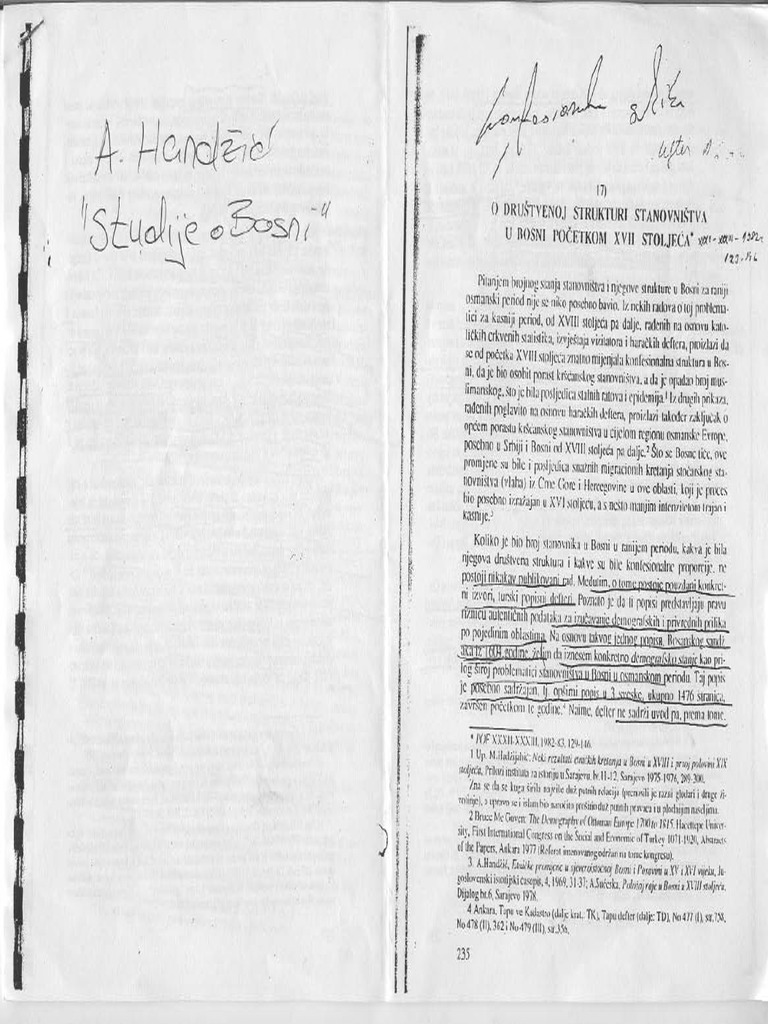 A. Handžić
"Studije o Bosni"
17)
O DRUŠTVENOJ STRUKTURI STANOVNIŠTVA
U BOSNI POČETKOM XVII STOLJEĆA*
Pitanjem brojnog stanja stanovništva i njegove strukture u Bosni za raniji
osmanski period nije se niko posebno bavio. Iz nekih radova o toj problema-
tici za kasniji period, od XVIII stoljeća pa dalje, rađenih na osnovu kato-
ličkih crkvenih statistika, izvještaja vizitatora i haračkih deftera, proizlazi da
se od početka XVIII stoljeća znatno mijenjala konfesionalna struktura u Bos-
ni, da je bio osobit porast kršćanskog stanovništva, a da je opadao broj mus-
limanskog, što je bila posljedica stalnih ratova i epidemija.1 Iz drugih prikaza,
rađenih poglavito na osnovu haračkih deftera, proizlazi također zaključak o
općem porastu kršćanskog stanovništva u cijelom regionu osmanske Evrope,
posebno u Srbiji i Bosni od XVIII stoljeća pa dalje.2 Što se Bosne tiče, ove
promjene su bile i posljedica snažnih migracionih kretanja stočarskog sta-
novništva (vlaha) iz Crne Gore i Hercegovine u ove oblasti, koji je proces
bio posebno izražajan u XVI stoljeću, a s nešto manjim intenzitetom trajao i
kasnije.3
Koliko je bio broj stanovnika u Bosni u ranijem periodu, kakva je bila
njegova društvena struktura i kakve su bile konfesionalne proporcije, ne
postoji nikakav publikovani rad. Međutim, o tome postoje pouzdani konkret-
ni izvori, turski popisni defteri. Poznato je da ti popisi predstavljaju pravu
riznicu autentičnih podataka za izučavanje demografskih i privrednih prilika
po pojedinim oblastima. Na osnovu takvog jednog popisa, Bosanskog sandž-
aka iz 1604. godine, želim da iznesem konkretno demografsko stanje kao pri-
log široj problematici stanovništva u Bosni u osmanskom periodu. Taj popis
je posebno sadržajan, tj. opširni popis u 3 sveske, ukupno 1476 stranica,
završen početkom te godine.4 Naime, defter ne sadrži uvod pa, prema tome,
* POF XXXII-XXXIII, 1982-83, 129-146.
1 Up. M.Hadžijahić: Neki rezultati etničkih kretanja u Bosni u XVIII i prvoj polovini XIX
stoljeća, Prilozi instituta za istoriju u Sarajevu, br. 11-12, Sarajevo 1975-1976, 289-300.
Zna se da se kuga širila najviše duž putnih relacija (prenosili je razni glodari i druge ži-
votinje), a upravo se i islam bio naročito proširio duž putnih pravaca i u plodnijim naseljima.
2 Bruce Mc Gowen: The Demography of Ottoman Europe 1700 to 1815. Hacettepe Univer-
sity, First International Congress on the Social and Economic of Turkey 1071-1920, Abstracts
of the Papers, Ankara 1977 (Referat imenovanog održan na tome kongresu).
3. A.Handžić, Etničke promjene u sjeveroistočnoj Bosni i Posavini u XV i XVI vijeku, Ju-
goslovenski istorijski časopis, 4, 1969, 31-37; A.Sućeska, Položaj raje u Bosni u XVIII stoljeću,
Dijalog br.6, Sarajevo 1978.
4 Ankara, Tapu ve Kadastro (dalje krat. TK), Tapu defter (dalje: TD), No 477 (I), str.258,
No 478 (II), 362 i No 479 (III), str.356.
235